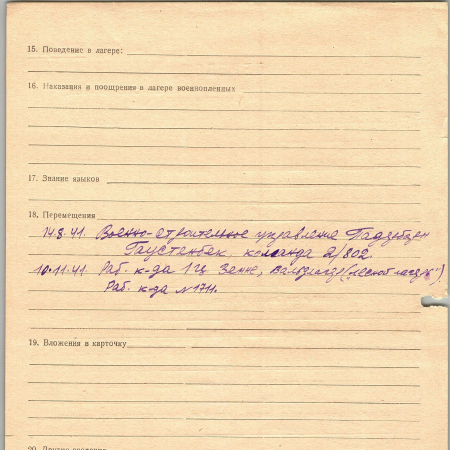 15. Поведение в лагере:
16. Наказания и поощрения в лагере военнопленных
17. Знание языков
18. Перемещения
14.8.41. Военно-строительное управление Падерборн
Гаустенбек команда 2/802.
10.11.41. Раб. к-да 1 Зенне, ("лесной лагерь").
Раб. к-да № 1711.
19. Вложения в карточку